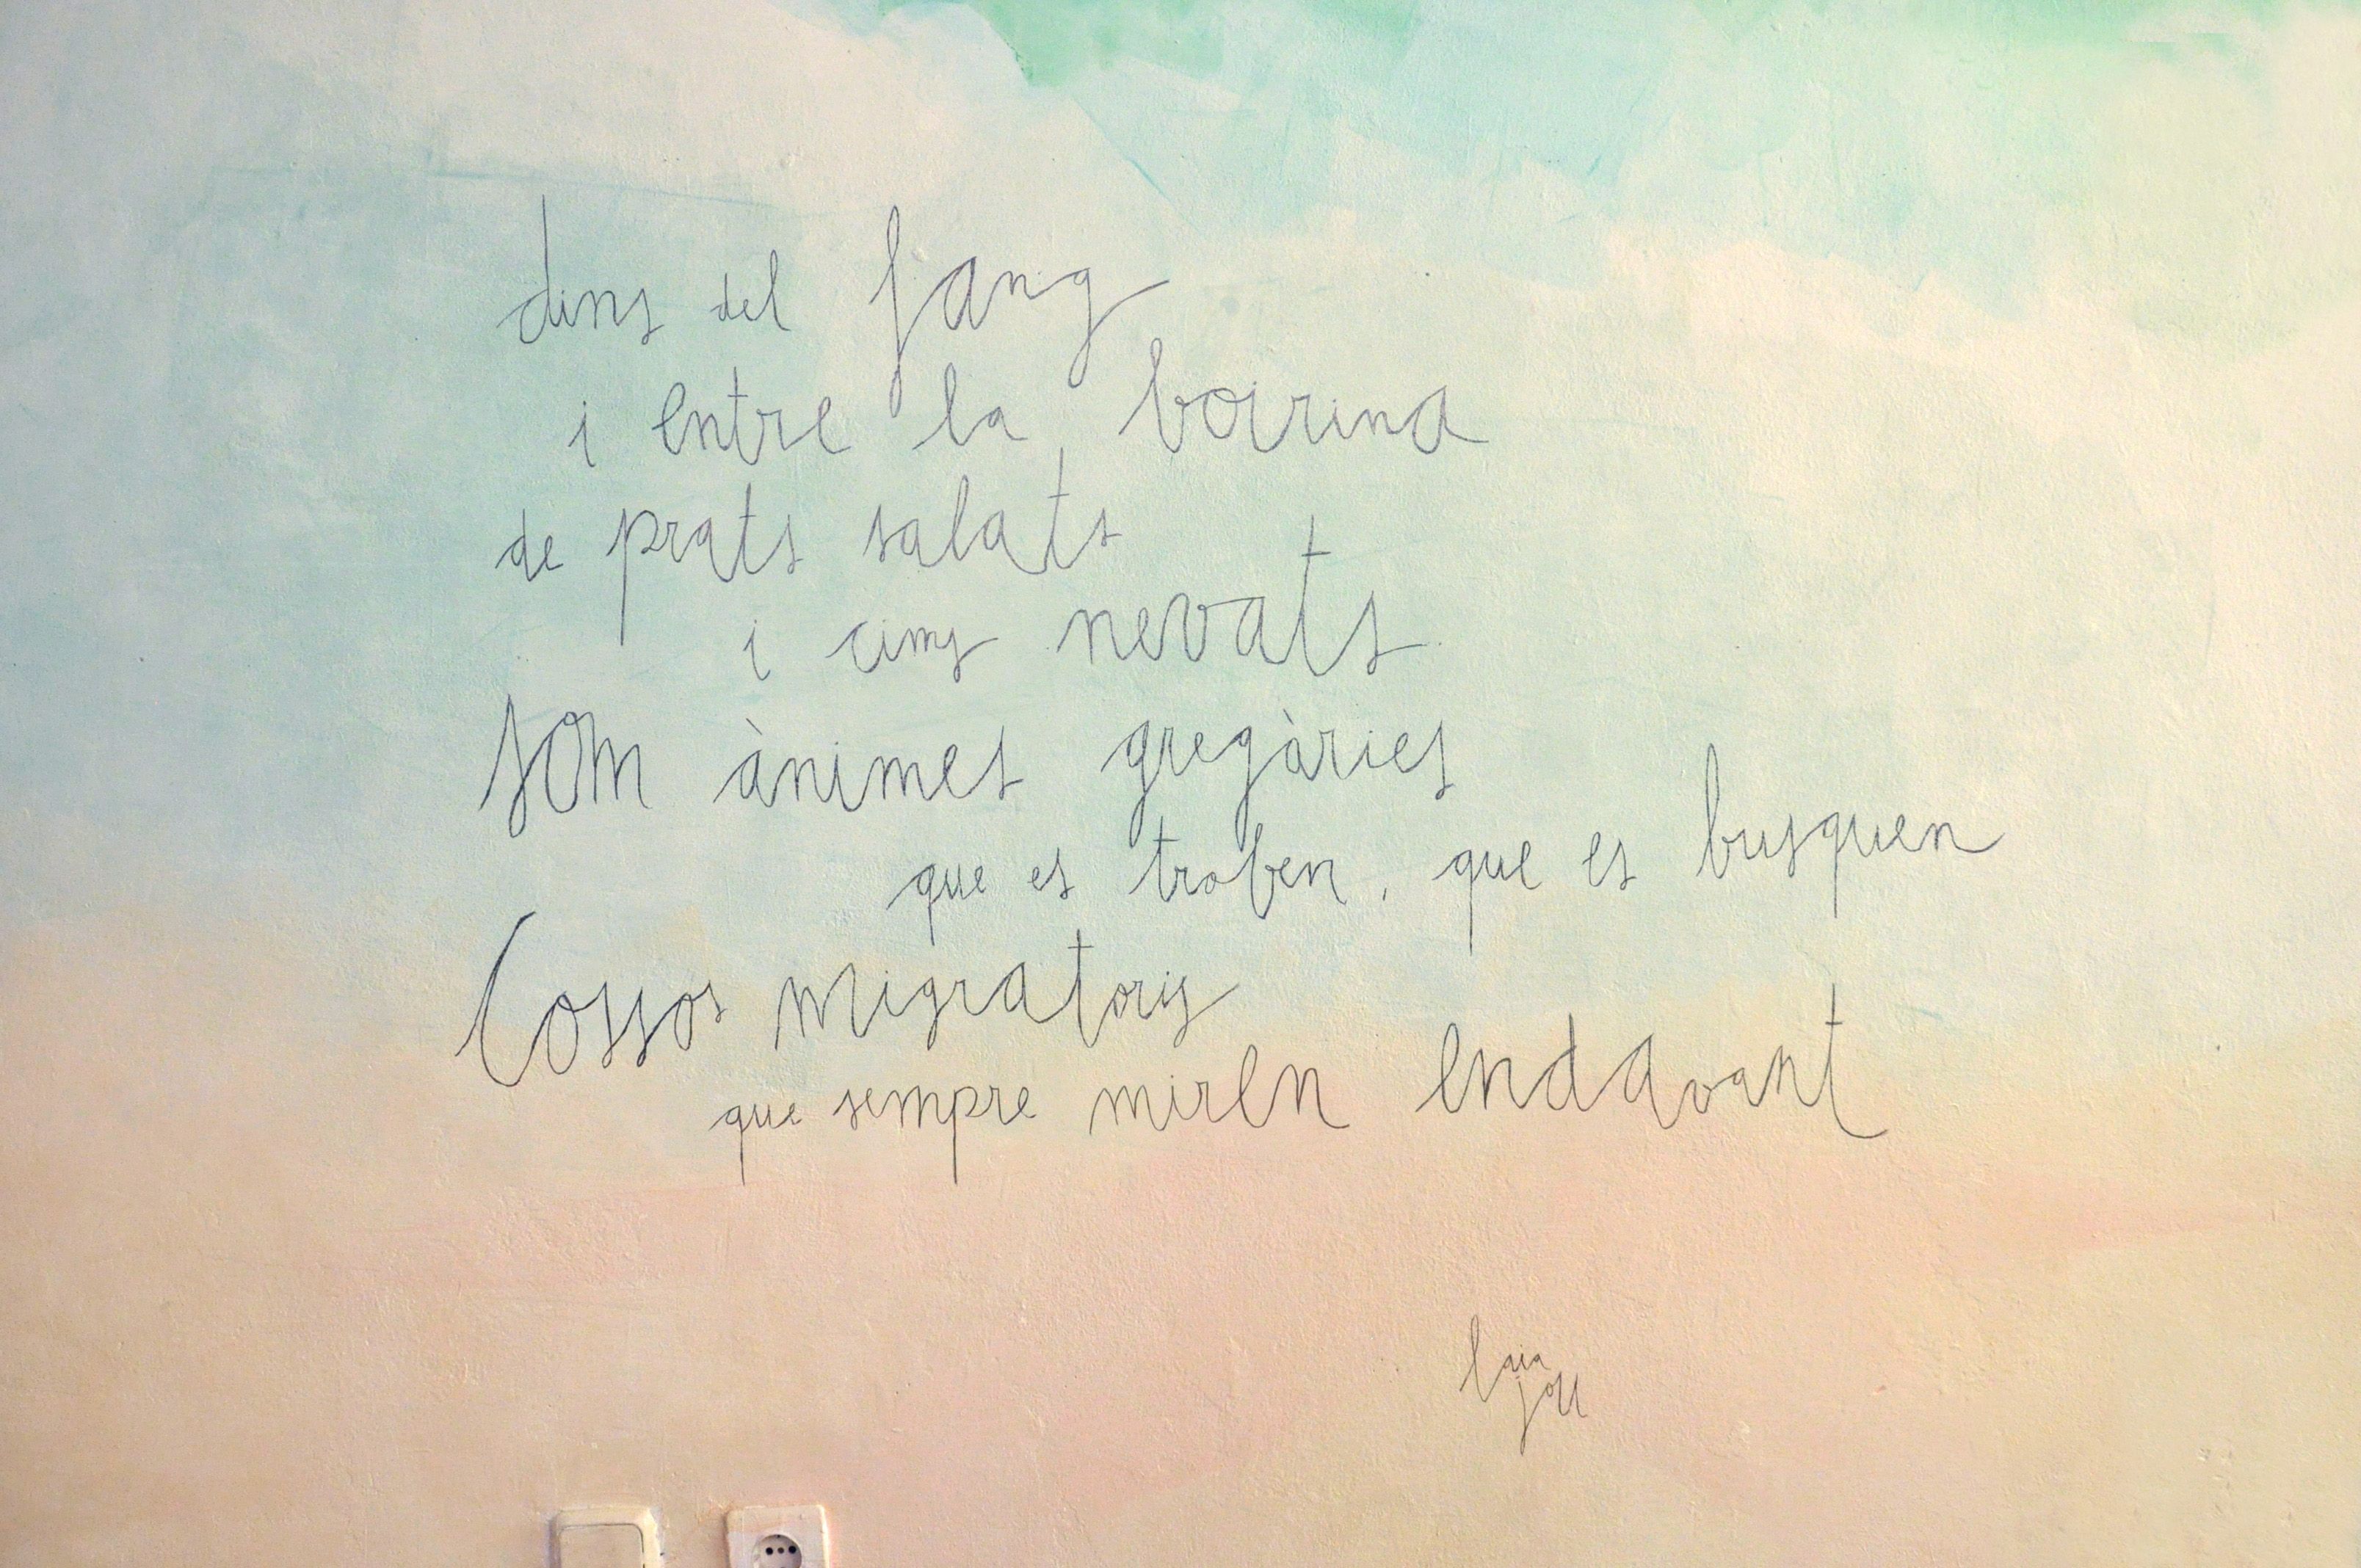 dins del fang
i entre la boirina
de prats salats
i cims nevats
som ànimes gregàries
que es troben, que es busquen
Cossos migratoris
que sempre miren endavant
laia
jou